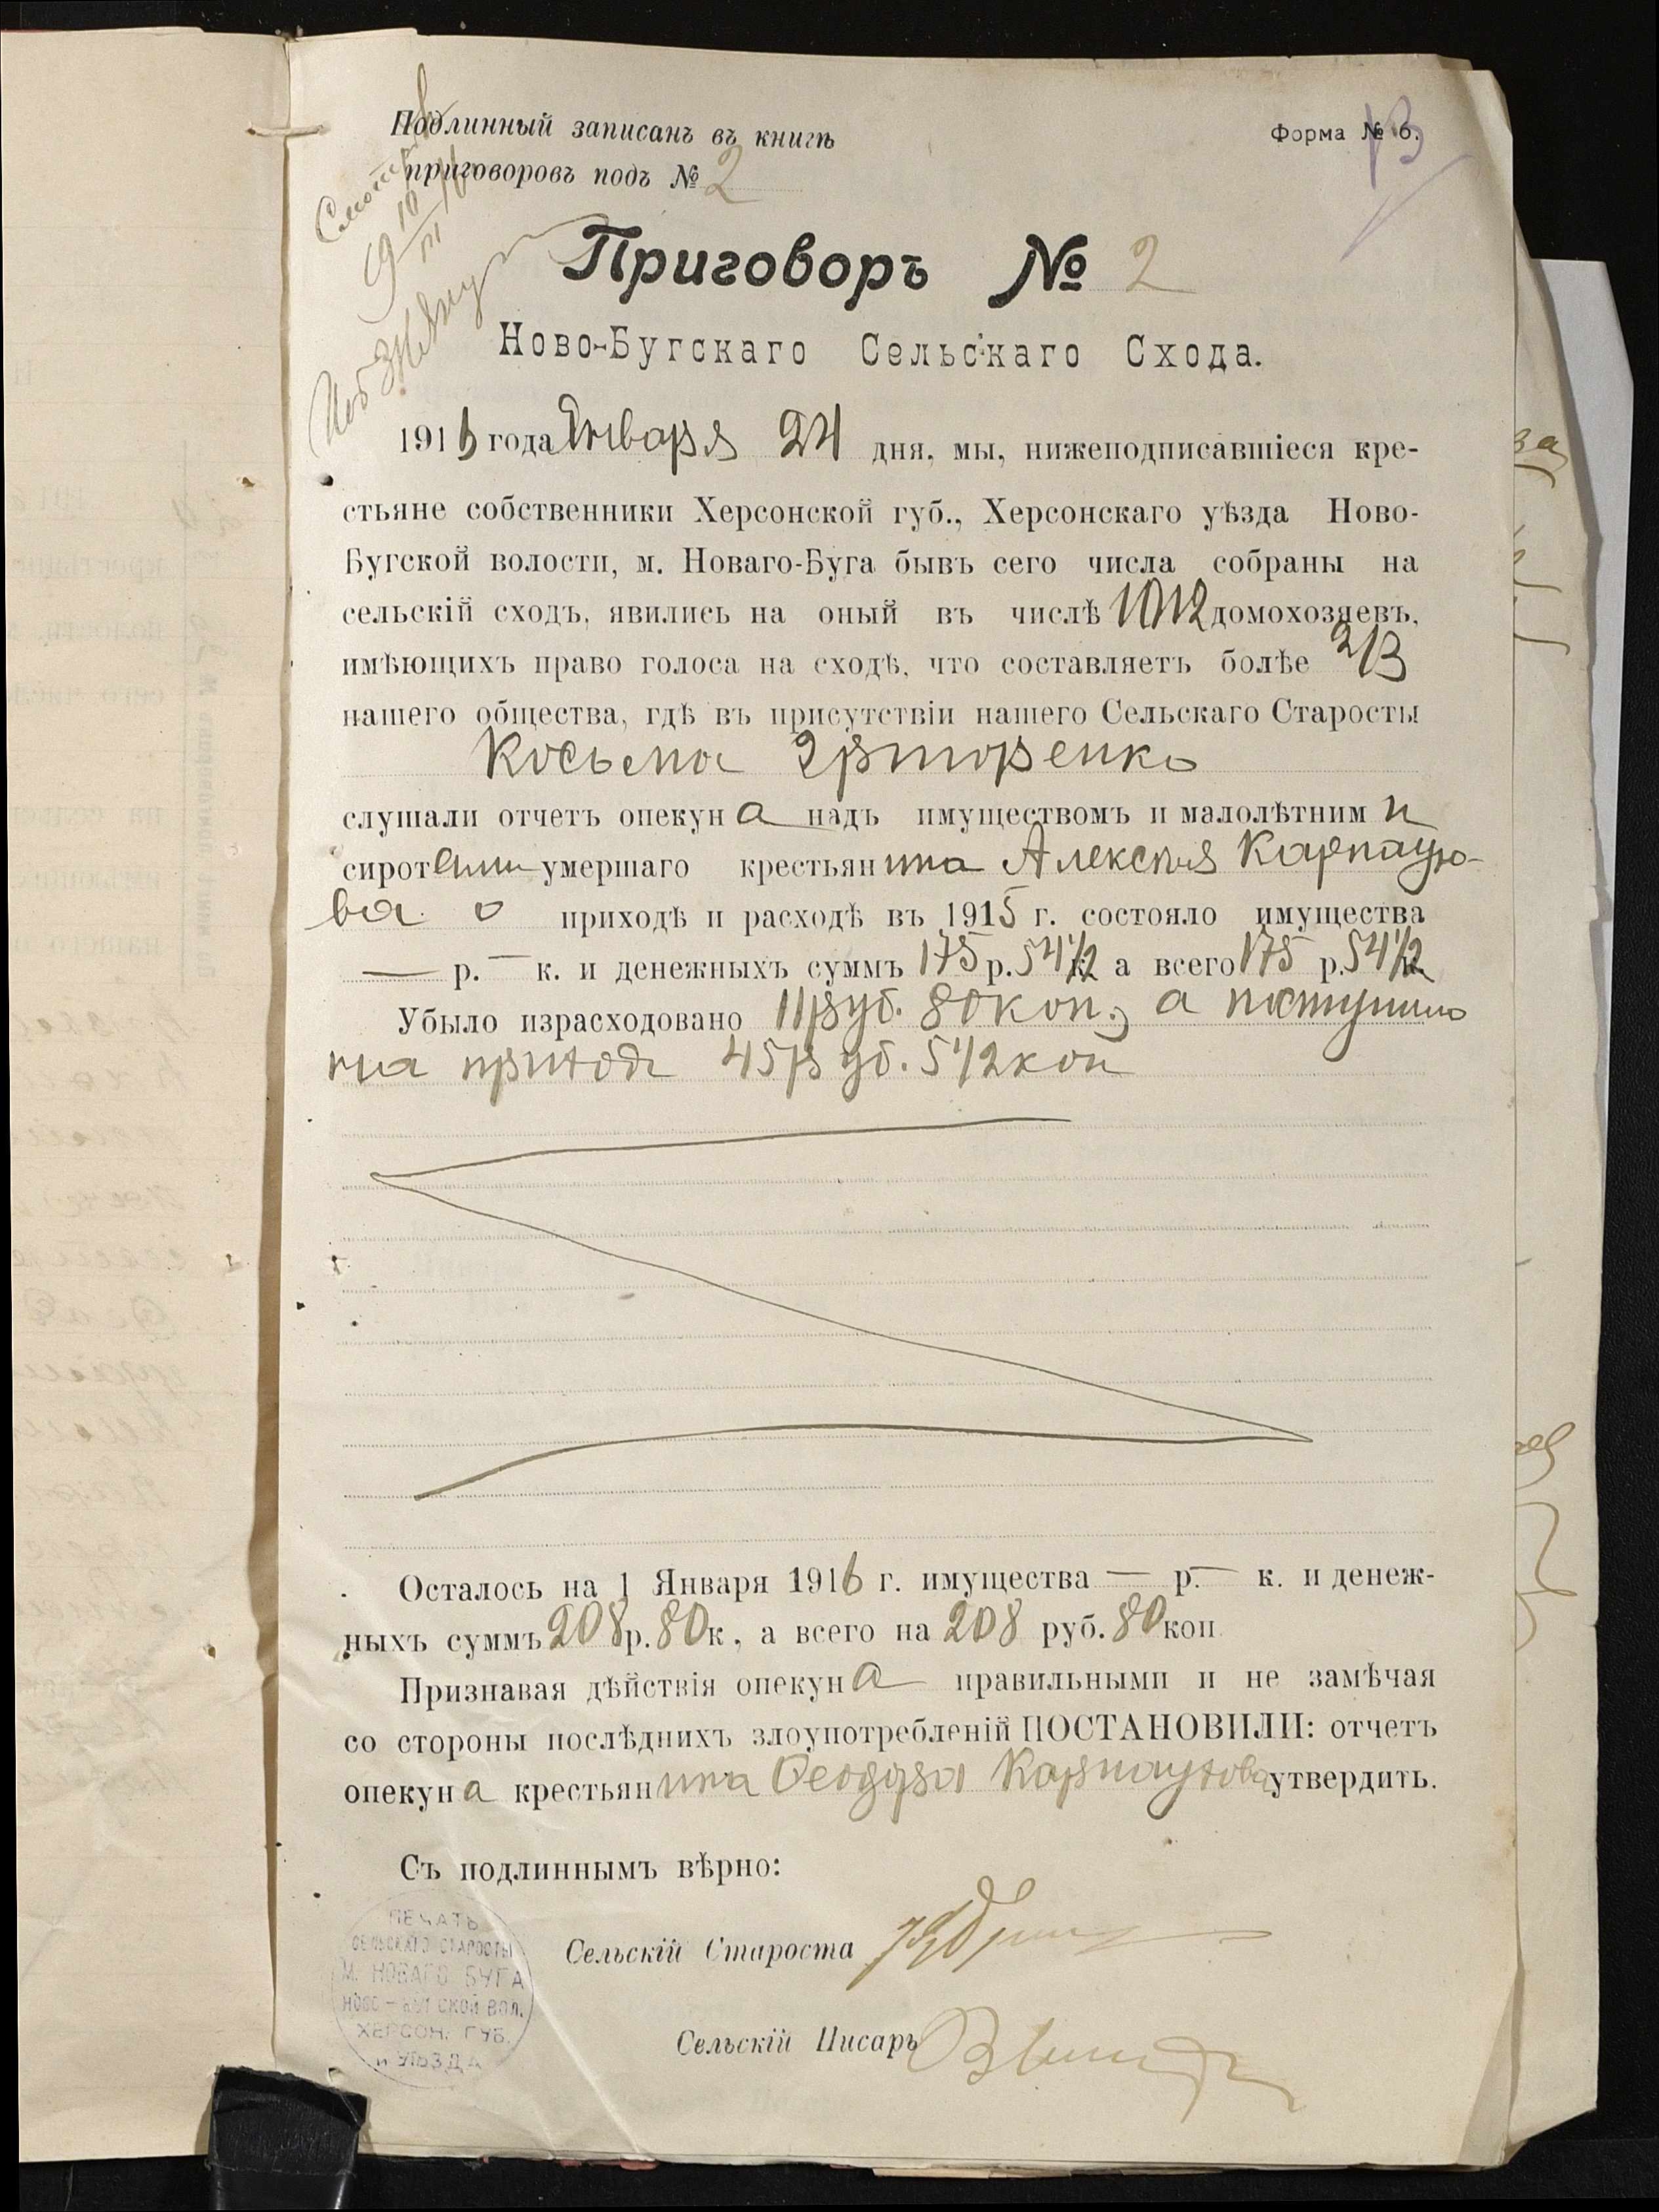 Подлинный записанъ въ книгѣ
приговоровъ подъ № 2
Форма № 6.
13
Приговоръ № 2
Ново-Бугскаго Сельскаго Схода.
1916 года Января 24 дня, мы, нижеподписавшіеся кре-
стьяне собственники Херсонской губ., Херсонскаго уѣзда Ново-
Бугской волости, м. Новаго-Буга бывъ сего числа собраны на
сельскій сходъ, явились на оный въ числѣ 1012 домохозяевъ,
имѣющихъ право голоса на сходѣ, что составляетъ болѣе 2/3
нашего общества, гдѣ въ присутствіи нашего Сельскаго Старосты
Косьма
слушали отчетъ опекуна надъ имуществомъ и малолѣтними
сиротами умершаго крестьянина Алексѣя Карнаухо-
ва о приходѣ и расходѣ въ 1915 г. состояло имущества
— р. — к. и денежныхъ суммъ 175 р. 54 1/2 к. а всего 175 р. 54 1/2 к.
Убыло израсходовано 11 руб. 80 коп., а поступило
на приходъ 45 руб. 5 1/2 коп
Осталось на 1 Января 1916 г. имущества — р. — к. и денеж-
ныхъ суммъ 208 р. 80 к, а всего на 208 руб. 80 коп
Признавая дѣйствія опекуна правильными и не замѣчая
со стороны послѣднихъ злоупотребленій ПОСТАНОВИЛИ: отчетъ
опекуна крестьянина Ѳеодора Карнаухова утвердить.
Съ подлиннымъ вѣрно:
Сельскій Староста
Сельскій Писарь
ПЕЧАТЬ
СЕЛЬСКАГО СТАРОСТЫ
М. НОВАГО БУГА
НОВО-БУГСКОЙ ВОЛ.
ХЕРСОН. ГУБ.
И УѢЗДА